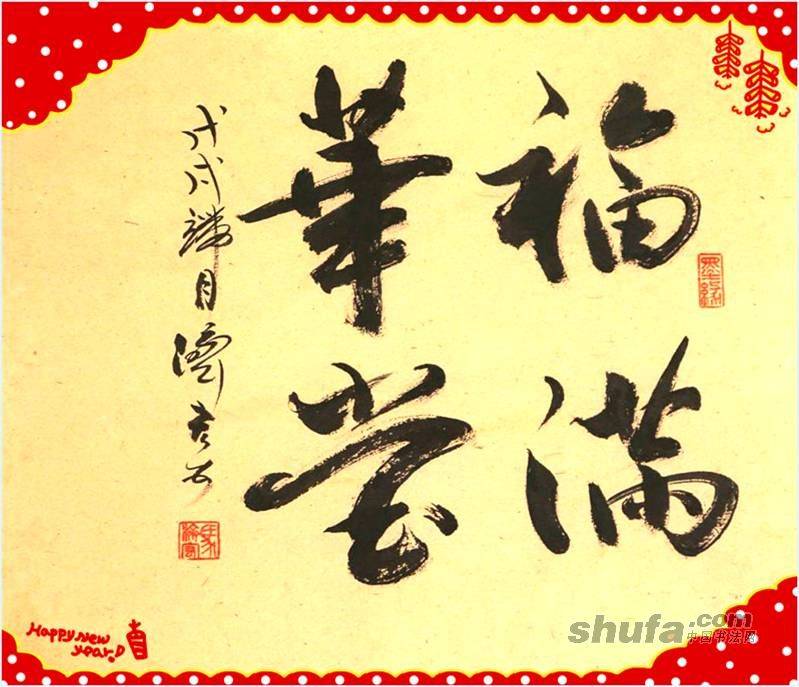 福滿
華堂
戊戌端月
Happy new
year!
shufa.com
中国书法网